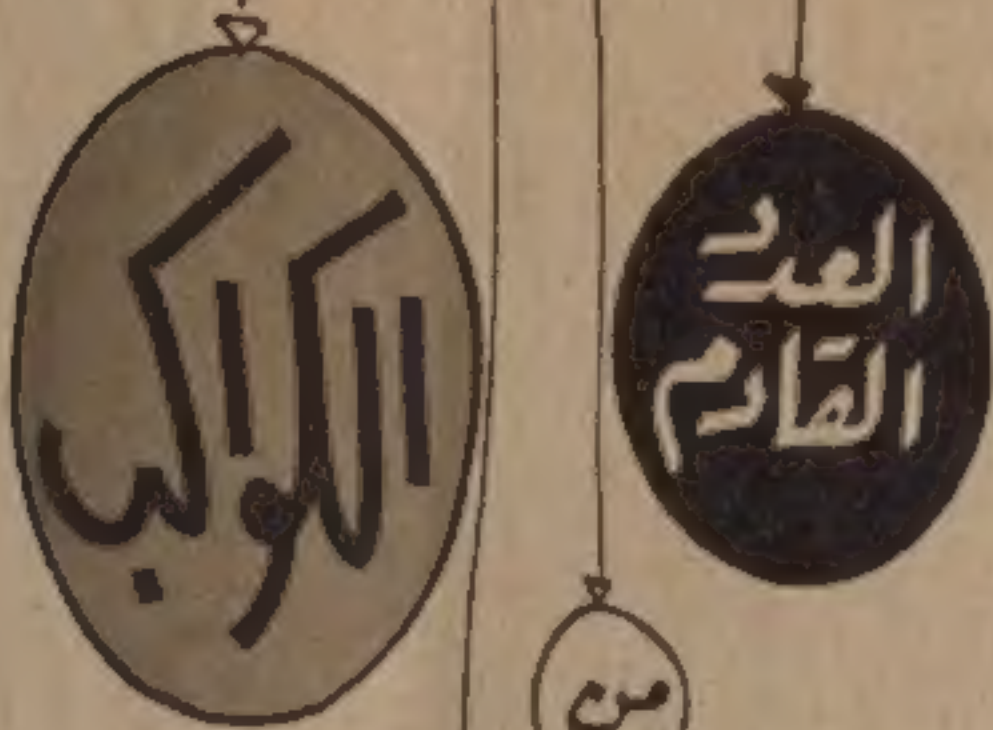 العدد
القادم
من
الكواكب